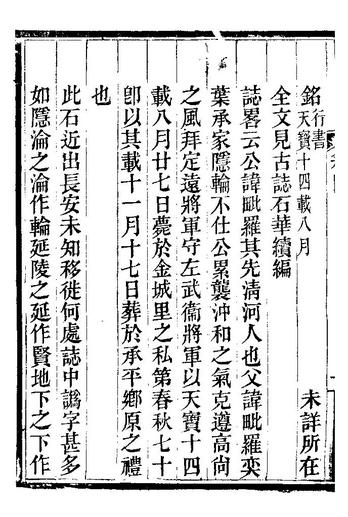 銘行書天寶十四載八月
全文見古誌石華續編
未詳所在
誌畧云公諱毗羅其先淸河人也父諱毗羅奕
葉承家隱輪不仕公累襲沖和之氣克遵高尙
之風拜定遠將軍守左武衞將軍以天寶十四
載八月廿七日薨於金城里之私第春秋七十
卽以其載十一月十七日葬於承平鄕原之禮
也
此石近出長安未知移徙何處誌中譌字甚多
如隱淪之淪作輪延陵之延作賢地下之下作